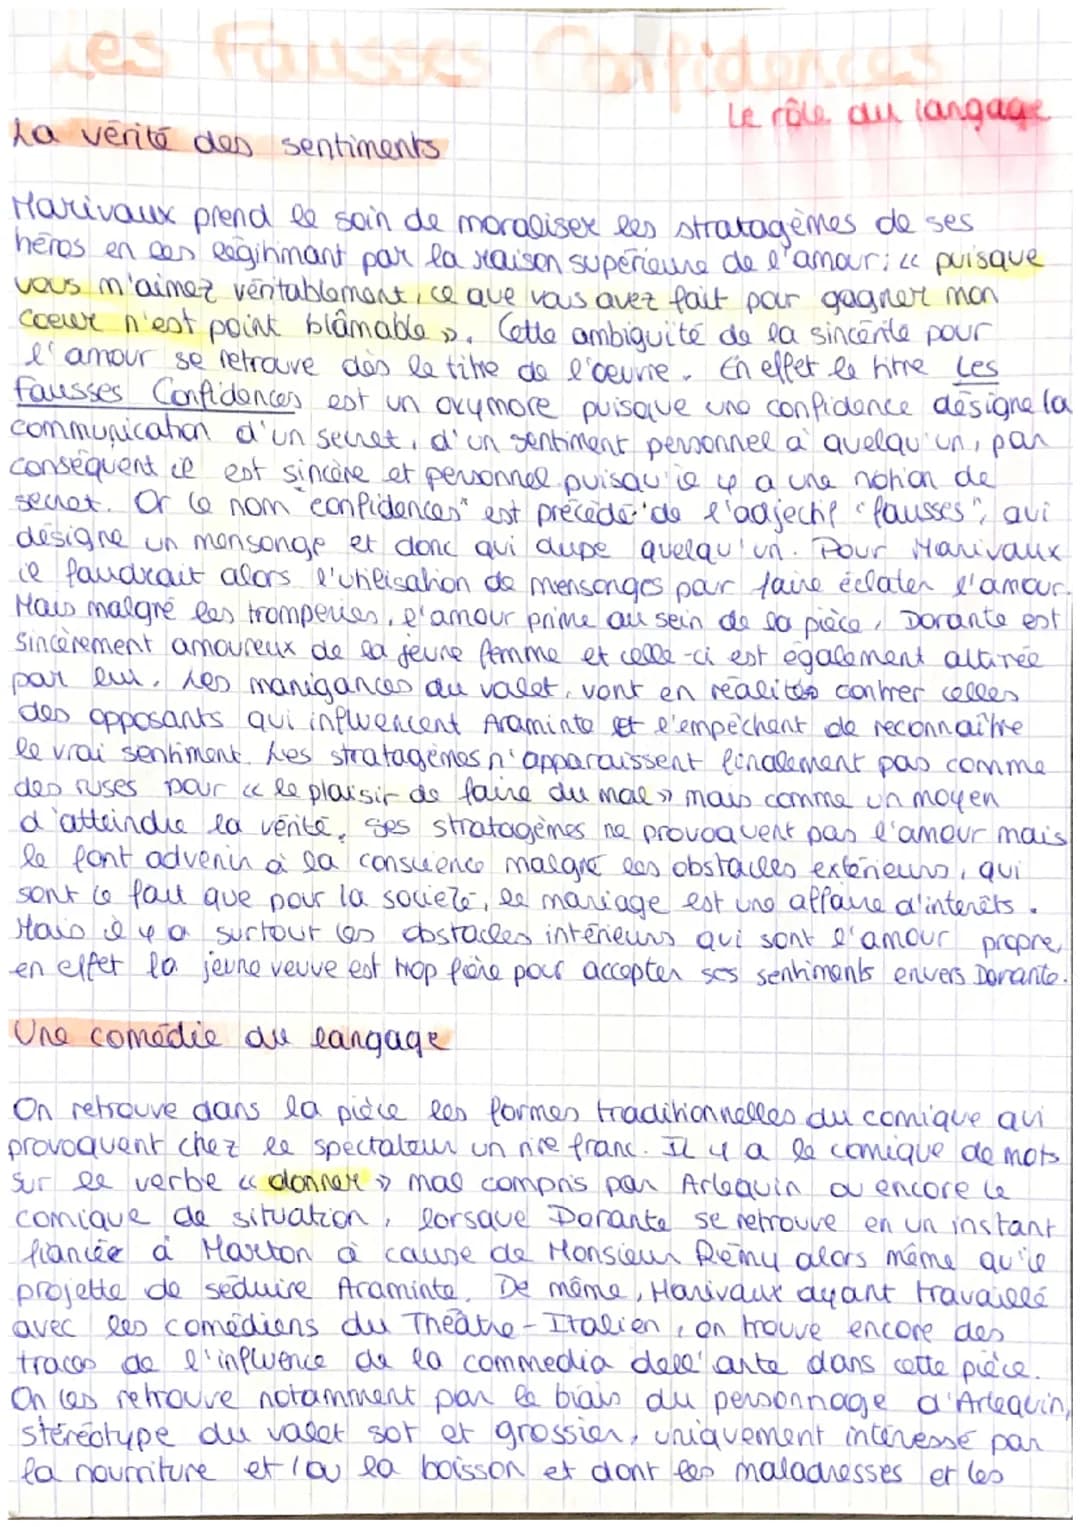 Les Fausses Confidences
Le rôle du langage
La vérité des sentiments
Marivaux prend le soin de moraliser les stratagèmes de ses
héros en les légitimant par la raison supérieure de l'amour : « puisque
vous m'aimez véritablement, ce que vous avez fait pour gagner mon
coeur n'est point blâmable ». Cette ambiguité de la sincérité pour
l'amour se retrouve dès le titre de l'oeuvre. En effet le titre Les
Fausses Confidences est un oxymore puisque une confidence désigne la
communication d'un secret, d'un sentiment personnel à quelqu'un, par
conséquent il est sincère et personnel puisqu'il y a une notion de
secret. Or le nom "confidences" est précédé de l'adjectif "fausses", qui
désigne un mensonge et donc qui dupe quelqu'un. Pour Marivaux
il faudrait alors l'utilisation de mensonges pour faire éclater l'amour.
Mais malgré les tromperies, l'amour prime au sein de la pièce, Dorante est
sincèrement amoureux de la jeune femme et celle-ci est également attirée
par lui. Les manigances du valet, vont en réalités contrer celles
des opposants qui influencent Araminte et l'empêchent de reconnaître
le vrai sentiment. Les stratagèmes n'apparaissent finalement pas comme
des ruses pour « le plaisir de faire du mal » mais comme un moyen
d'atteindre la vérité. Ses stratagèmes ne provoquent pas l'amour mais
le font advenir à la conscience malgré les obstacles extérieurs, qui
sont le fait que pour la société, le mariage est une affaire d'intérêts.
Mais il y a surtout les obstacles intérieurs qui sont l'amour propre,
en effet la jeune veuve est trop fière pour accepter ses sentiments envers Dorante.
Une comédie du langage
On retrouve dans la pièce les formes traditionnelles du comique qui
provoquent chez le spectateur un rire franc. Il y a le comique de mots
sur le verbe « donner » mal compris par Arlequin ou encore le
comique de situation, lorsque Dorante se retrouve en un instant
fiancée à Marton à cause de Monsieur Rémy alors même qu'il
projette de séduire Araminte. De même, Marivaux ayant travaillé
avec les comédiens du Théâtre-Italien, on trouve encore des
traces de l'influence de la commedia dell'arte dans cette pièce.
On les retrouve notamment par le biais du personnage d'Arlequin,
stéréotype du valet sot et grossier, uniquement intéressé par
la nourriture et/ou la boisson et dont les maladresses et les